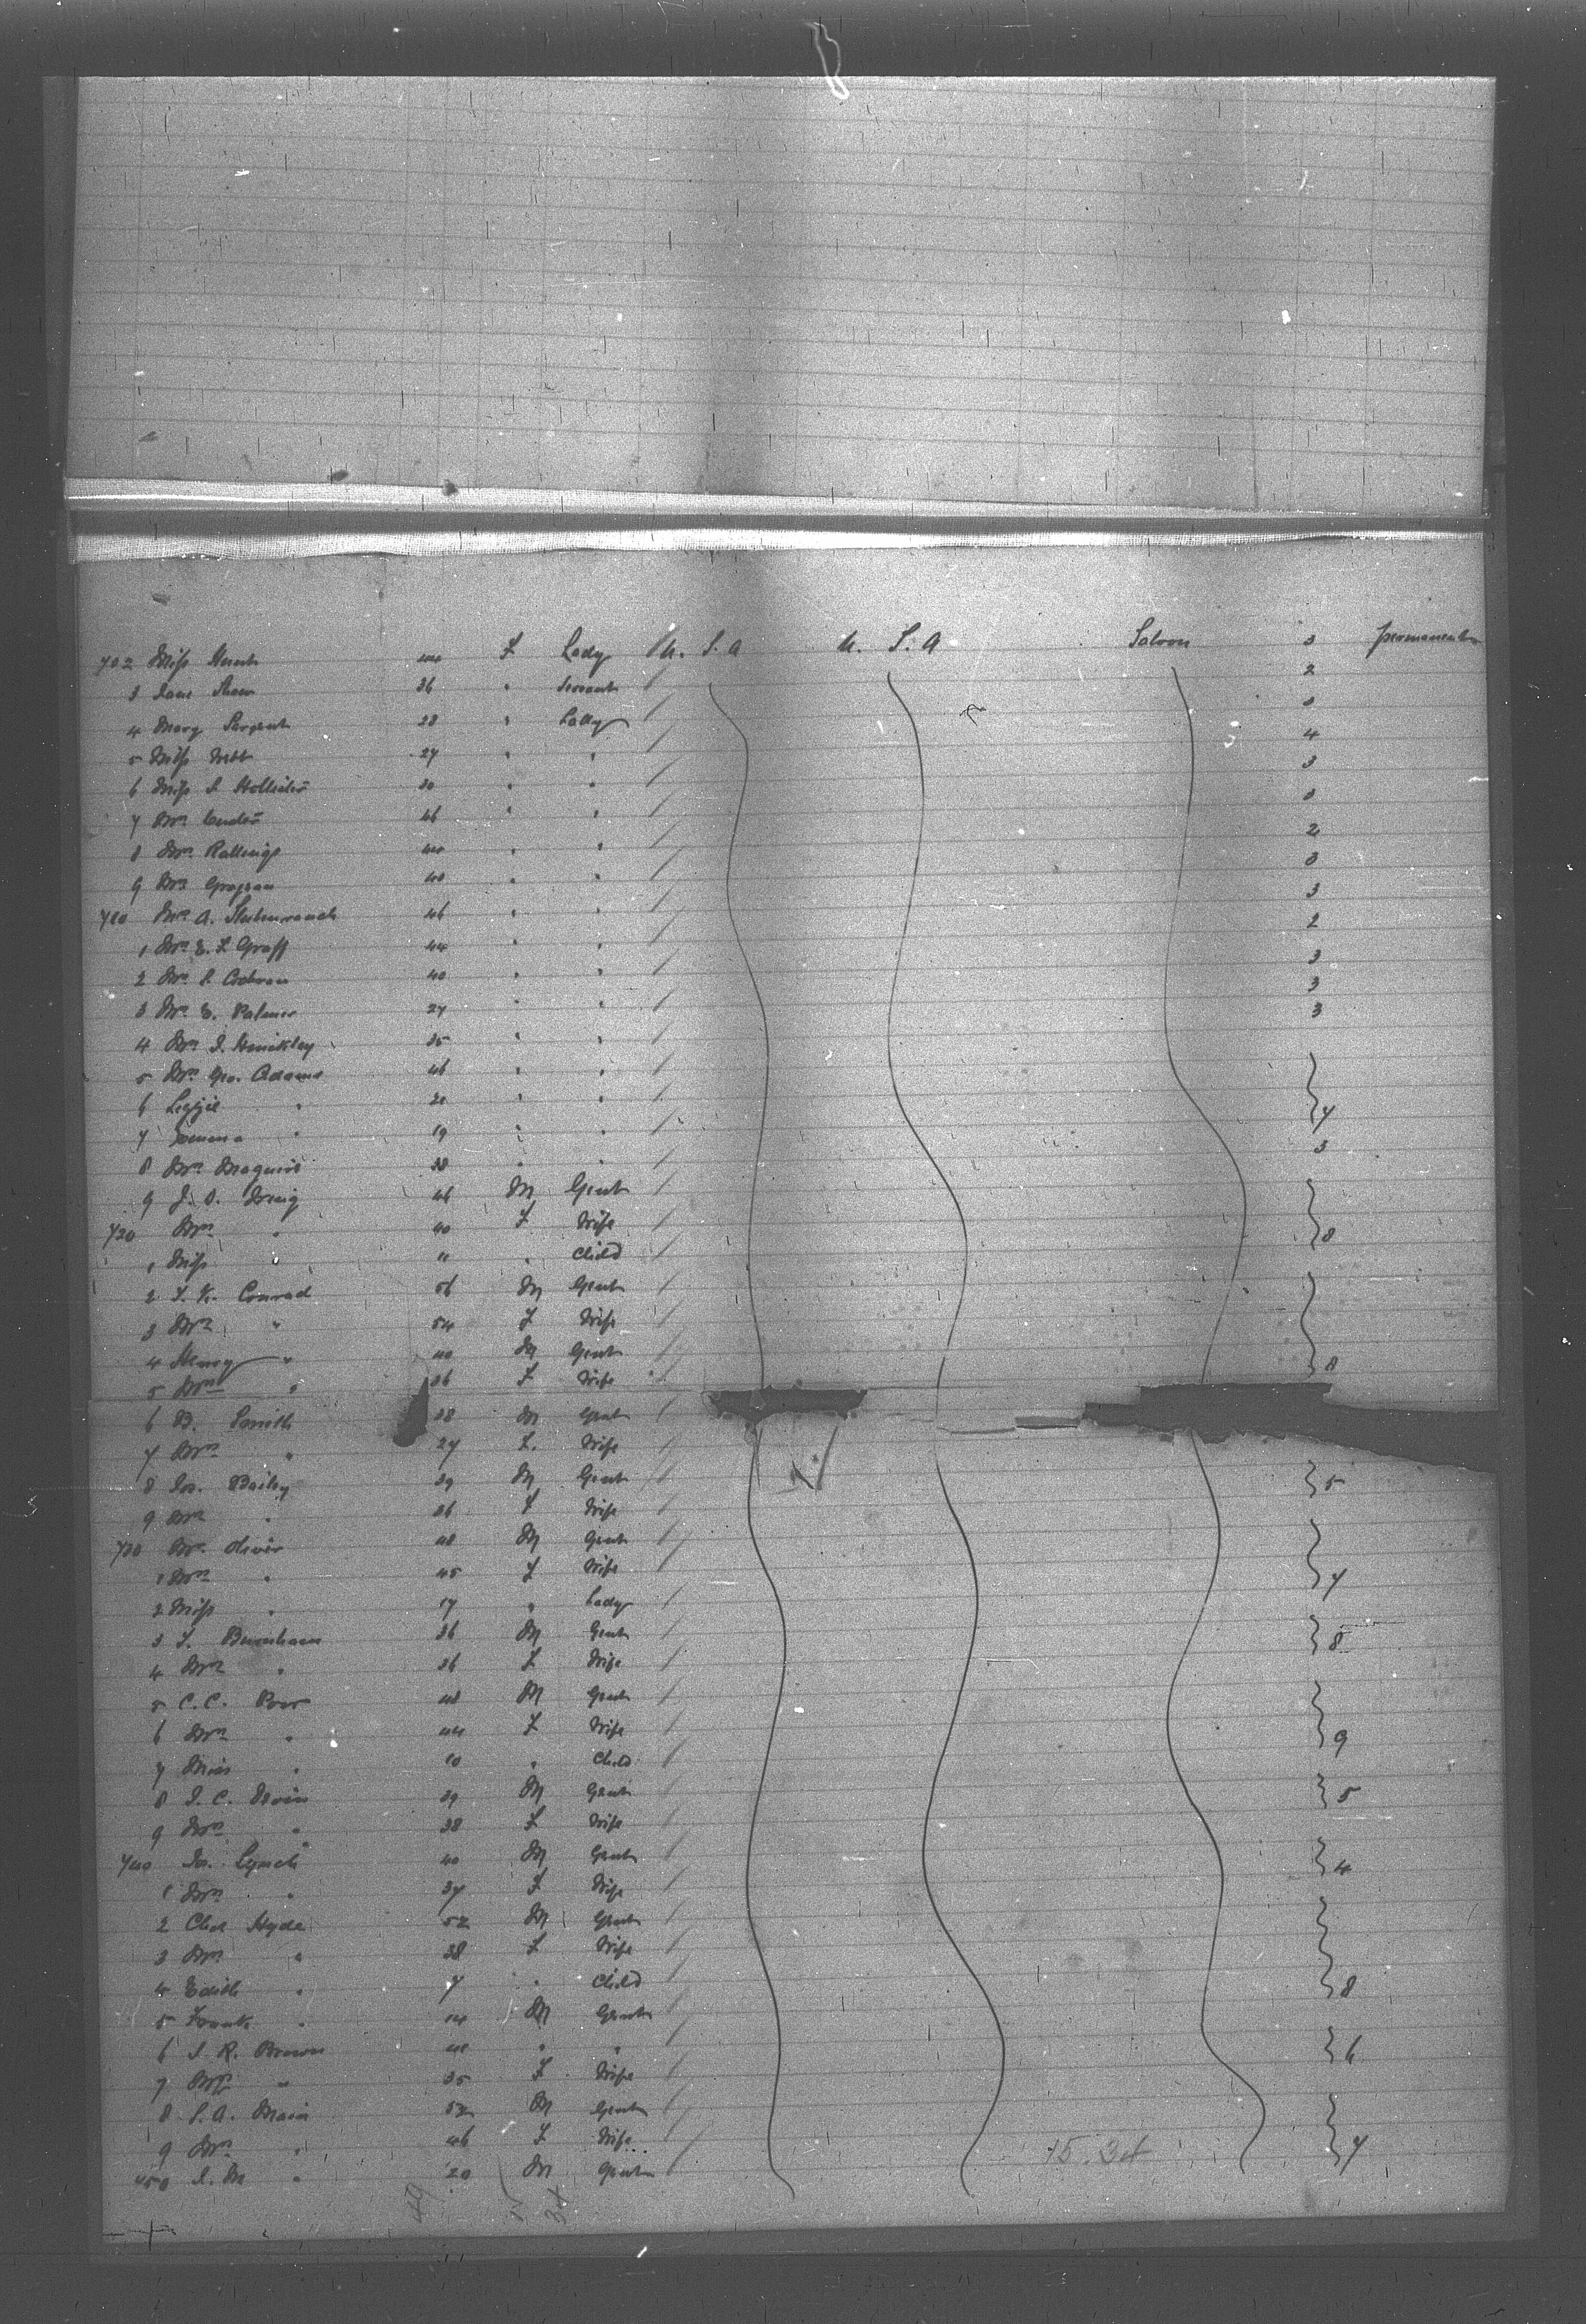 702 Miss Hunt 44 F Lady U. S. A U. S. A Saloon 3 permanently
3 Jane Shaw 36 " Servant 2
4 Mary Sargent 28 " Lady 3
5 Miss Webb 27 " " 4
6 Miss S. Hollister 30 " " 3
7 Mrs 46 " " 3
8 Mrs Rallings 44 " " 2
9 Mrs 40 " " 3
710 Mrs A. 46 " " 3
1 Mrs E. L Graff 44 " " 2
2 Mrs S. 40 " " 3
3 Mrs E. Palmer 27 " " 3
4 Mrs J. Hinckley 35 " " 3
5 Mrs Geo. Adams 46 " "
6 Lizzie " 21 " "
7 Emma " 19 " " 7
8 Mrs Maguire 38 " " 3
9 J. O. 46 M Gent
720 Mrs " 40 F Wife
1 Miss " 11 " Child 8
2 Conrad 56 M Gent
3 Mrs " 54 F Wife
4 Henry " 40 M Gent
5 Mrs " 36 F Wife 8
6 B. Smith 38 M Gent
7 Mrs " 27 F. Wife
8 Jas. Bailey 39 M Gent
9 Mrs " 36 F Wife 5
730 Mr. Oliver 48 M Gent
1 Mrs " 45 F Wife
2 Miss " 17 " Lady 7
3 Burnham 36 M Gent
4 Mrs " 36 F Wife 8
5 C. C. Poor 48 M Gent
6 Mrs " 44 F Wife
7 Miss " 10 " Child 9
8 J. C. 39 M Gent
9 Mrs " 38 F Wife 5
740 Jas. Lynch 40 M Gent
1 Mrs " 37 F Wife 4
2 Chas Hyde 52 M Gent
3 Mrs " 38 F Wife
4 Edith " 7 " Child
5 Frank " 14 M Gent 8
6 J. R. Brown 41 " "
7 Mrs " 35 F Wife 6
8 S. A. Main 52 M Gent
9 Mrs " 46 F Wife
750 J. M " 20 M Gent 7
15. 34
49 15 34